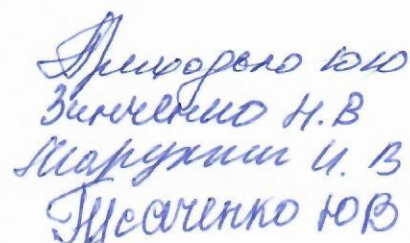 Приходько ЮЮ
Зинченко Н.В
Марухин И.В
Ткаченко ЮВ